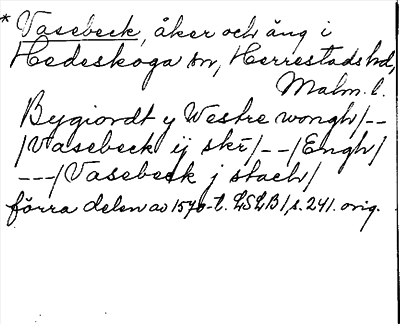 * Vasebeck, åker och äng i
Hedeskoga sn, Herrestads hd,
Malm. l.
Bygiordt y Westre wongh/--
/Vasebeck ij skr̄/--/Engh/
---/Vasebeck j stach/
förra delen av 1570-t. LSLB1, s. 241. orig.